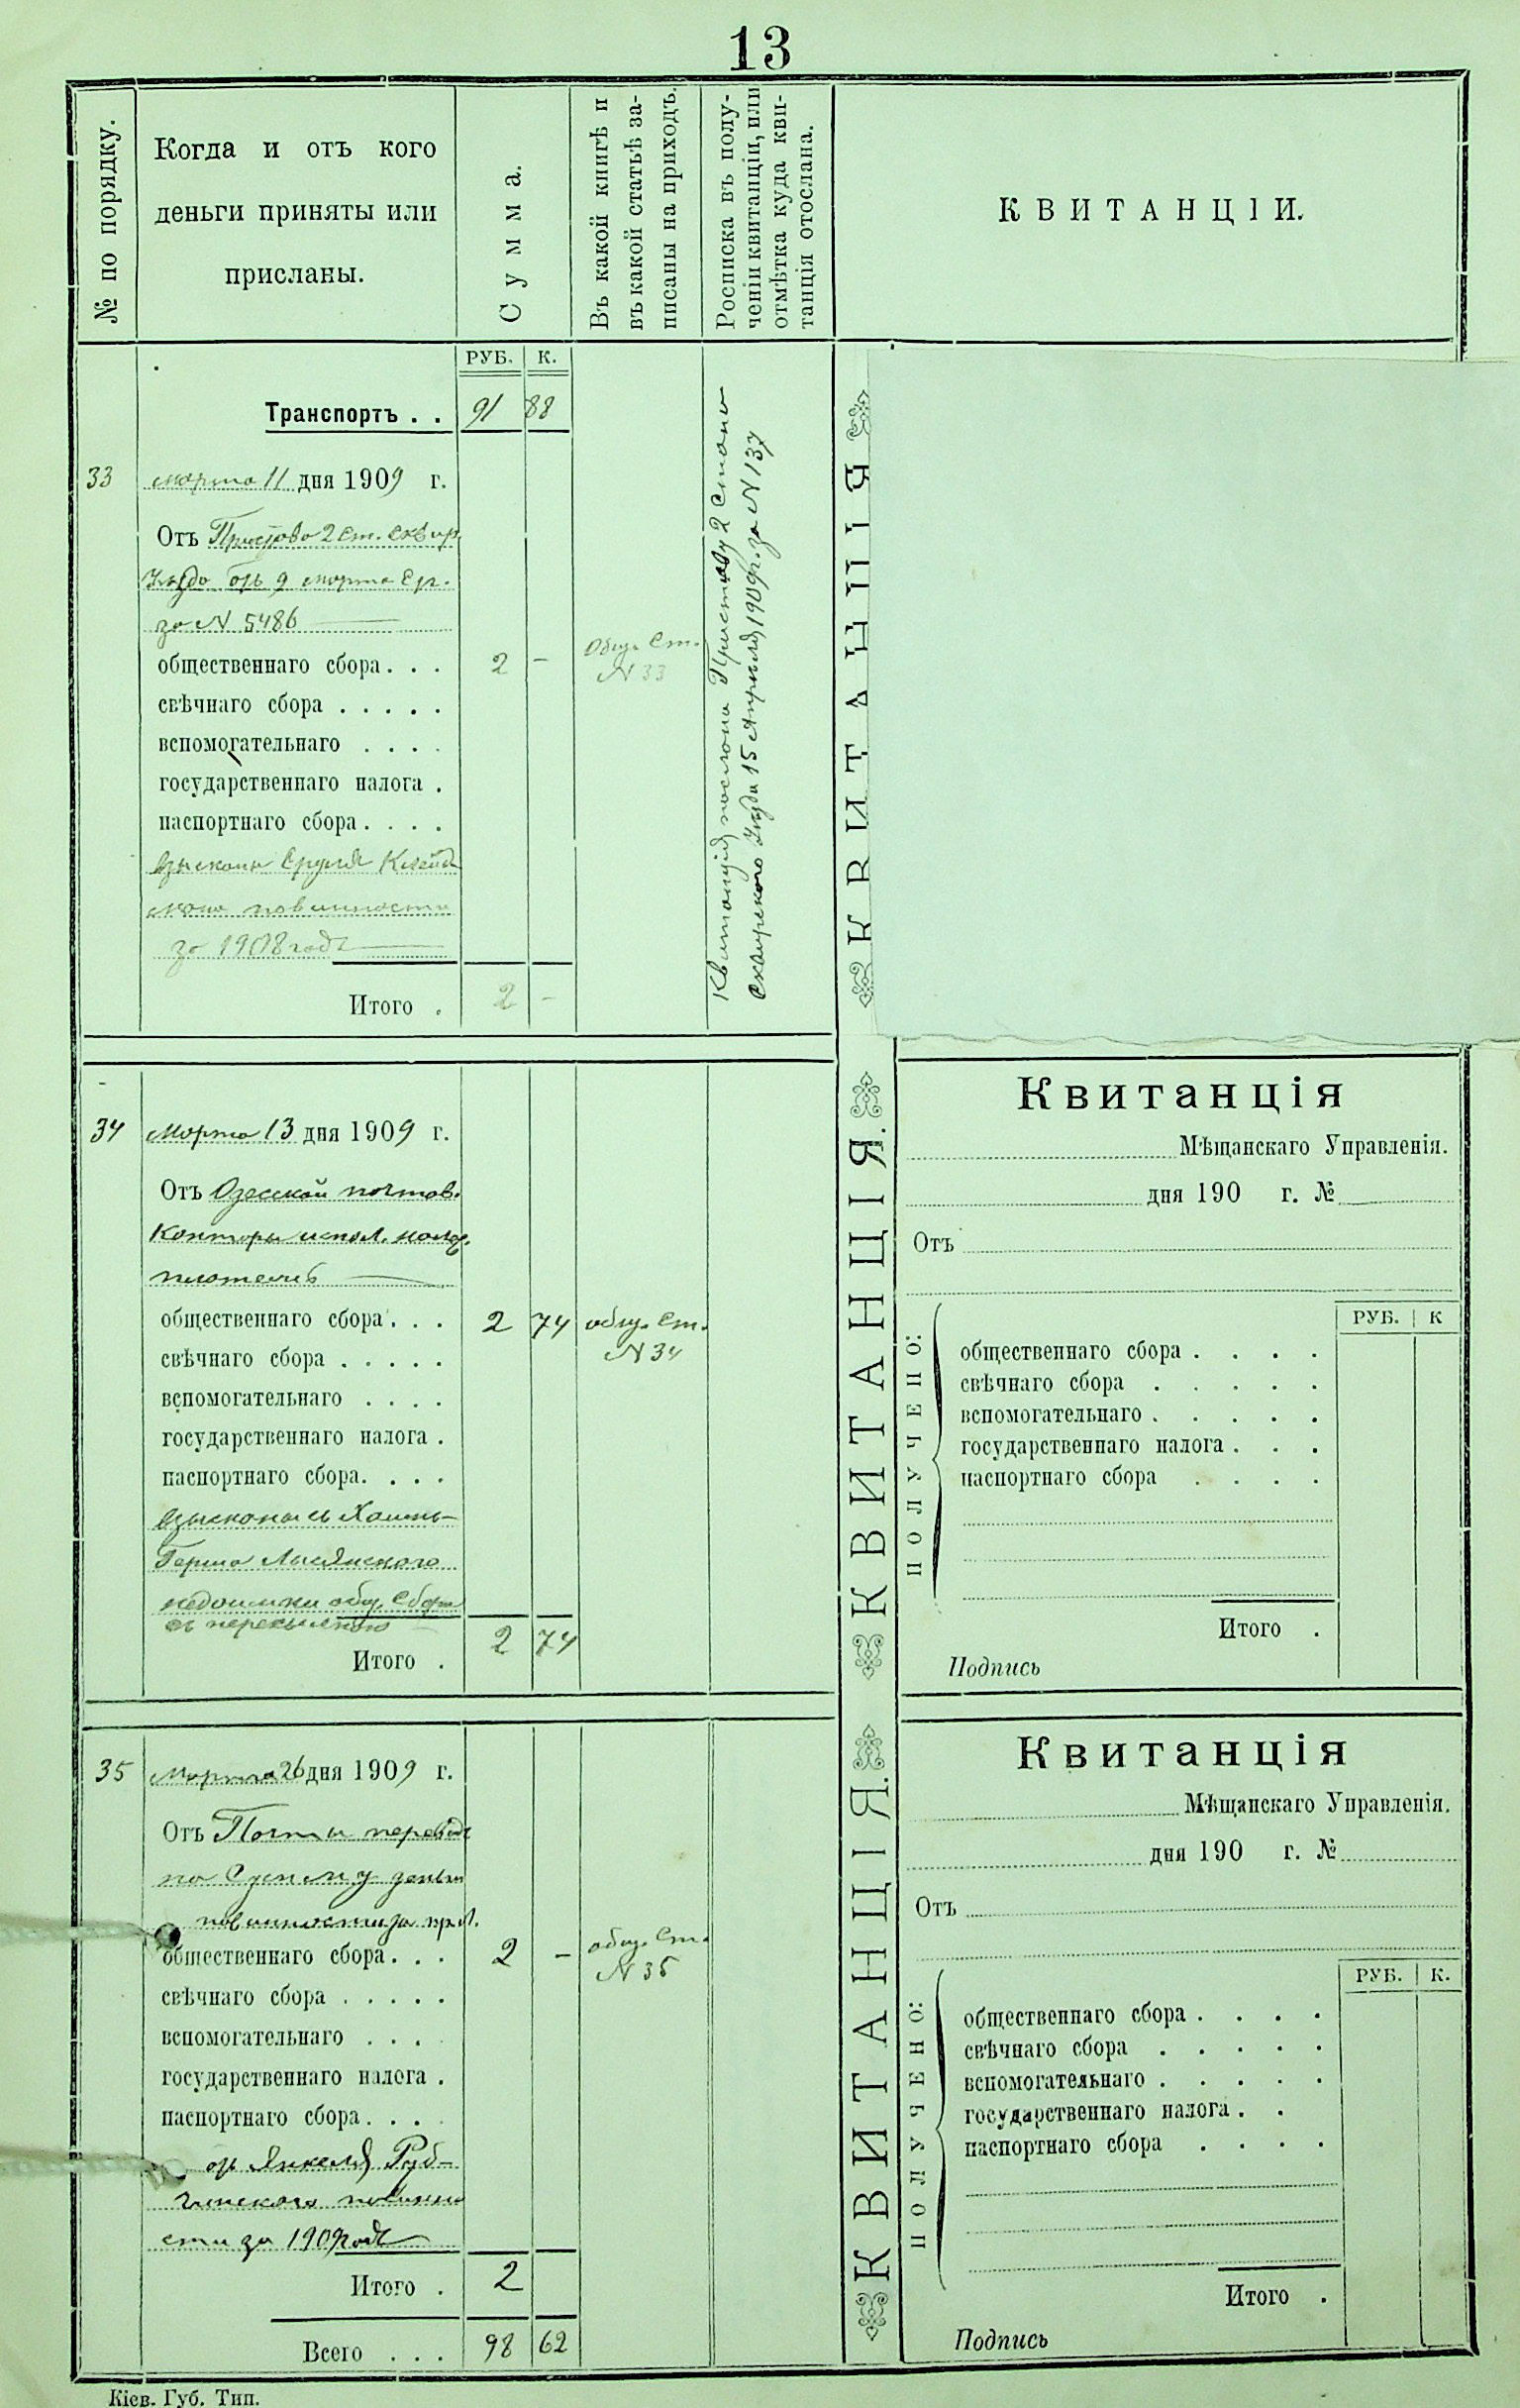 13
№ по порядку.
Когда и отъ кого
деньги приняты или
присланы.
Сумма.
Въ какой книгѣ и
въ какой статьѣ за-
писаны на приходъ.
Росписка въ полу-
ченіи квитанціи, или
отмѣтка куда кви-
танція отослана.
КВИТАНЦІИ.
РУБ. К.
Транспортъ . . 91 88
33 марта 11 дня 1909 г.
Отъ Пристава 2 ст. Сквир.
Уѣзда отъ 9 марта с.г.
за N 5486
общественнаго сбора . . . 2 –
Общ. Ст.
N 33
свѣчнаго сбора . . . . .
вспомогательнаго . . . .
государственнаго налога .
паспортнаго сбора . . . .
взысканы Сруля
повинности
за 1908 годъ
Итого . 2 –
Квитанція послана Приставу 2 Стана
Сквирского Уѣзда 15 Апрѣля 1909 г. за N 137
КВИТАНЦІЯ
34 Марта 13 дня 1909 г.
Отъ Одесской почтов.
Конторы
общественнаго сбора . . . 2 74 общ. Ст.
N 34
свѣчнаго сбора . . . . .
вспомогательнаго . . . .
государственнаго налога .
паспортнаго сбора . . . .
взысканы съ
Лысянского
недоимки общ. сбора
съ пересылкою
Итого . 2 74
КВИТАНЦІЯ.
Квитанція
Мѣщанскаго Управленія.
дня 190 г. №
Отъ
РУБ. К
ПОЛУЧЕНО:
общественнаго сбора . . . .
свѣчнаго сбора . . . . .
вспомогательнаго . . . . .
государственнаго налога . . .
паспортнаго сбора . . . .
Итого .
Подпись
35 Марта 26 дня 1909 г.
Отъ Почты перевод
по
повинности за
общественнаго сбора . . . 2 – общ. Ст.
N 35
свѣчнаго сбора . . . . .
вспомогательнаго . . . .
государственнаго налога .
паспортнаго сбора . . . .
отъ Янкеля Руб-
чинского повинно
сти за 1909 годъ
Итого . 2
Всего . . . 98 62
КВИТАНЦІЯ.
Квитанція
Мѣщанскаго Управленія.
дня 190 г. №
Отъ
РУБ. К.
ПОЛУЧЕНО:
общественнаго сбора . . . .
свѣчнаго сбора . . . . .
вспомогательнаго . . . . .
государственнаго налога . .
паспортнаго сбора . . . .
Итого .
Подпись
Кіев. Губ. Тип.